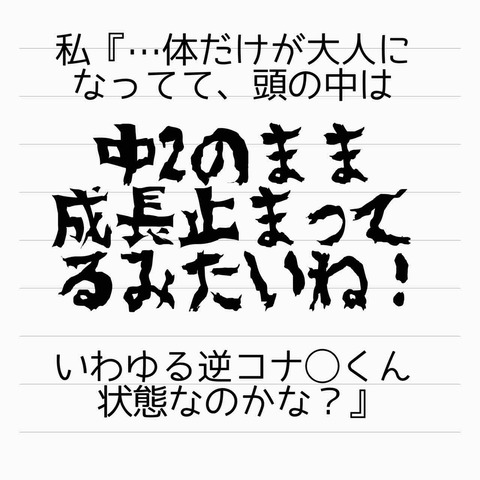 私『…体だけが大人に
なってて、頭の中は
中2のまま
成長止まって
るみたいね!
いわゆる逆コナ◯くん
状態なのかな?』